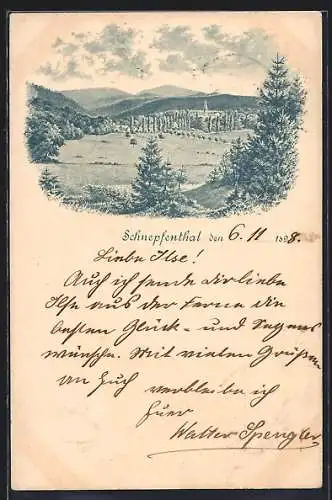 Schnepfenthal den 6. 11 1898.
Liebe Ilse!
Auch ich sende dir liebe
Ilse aus der Ferne die
besten Glück- und Segens
wünsche. Mit vielen Grüßen
an Euch verbleibe ich
Euer
Walter Spengler